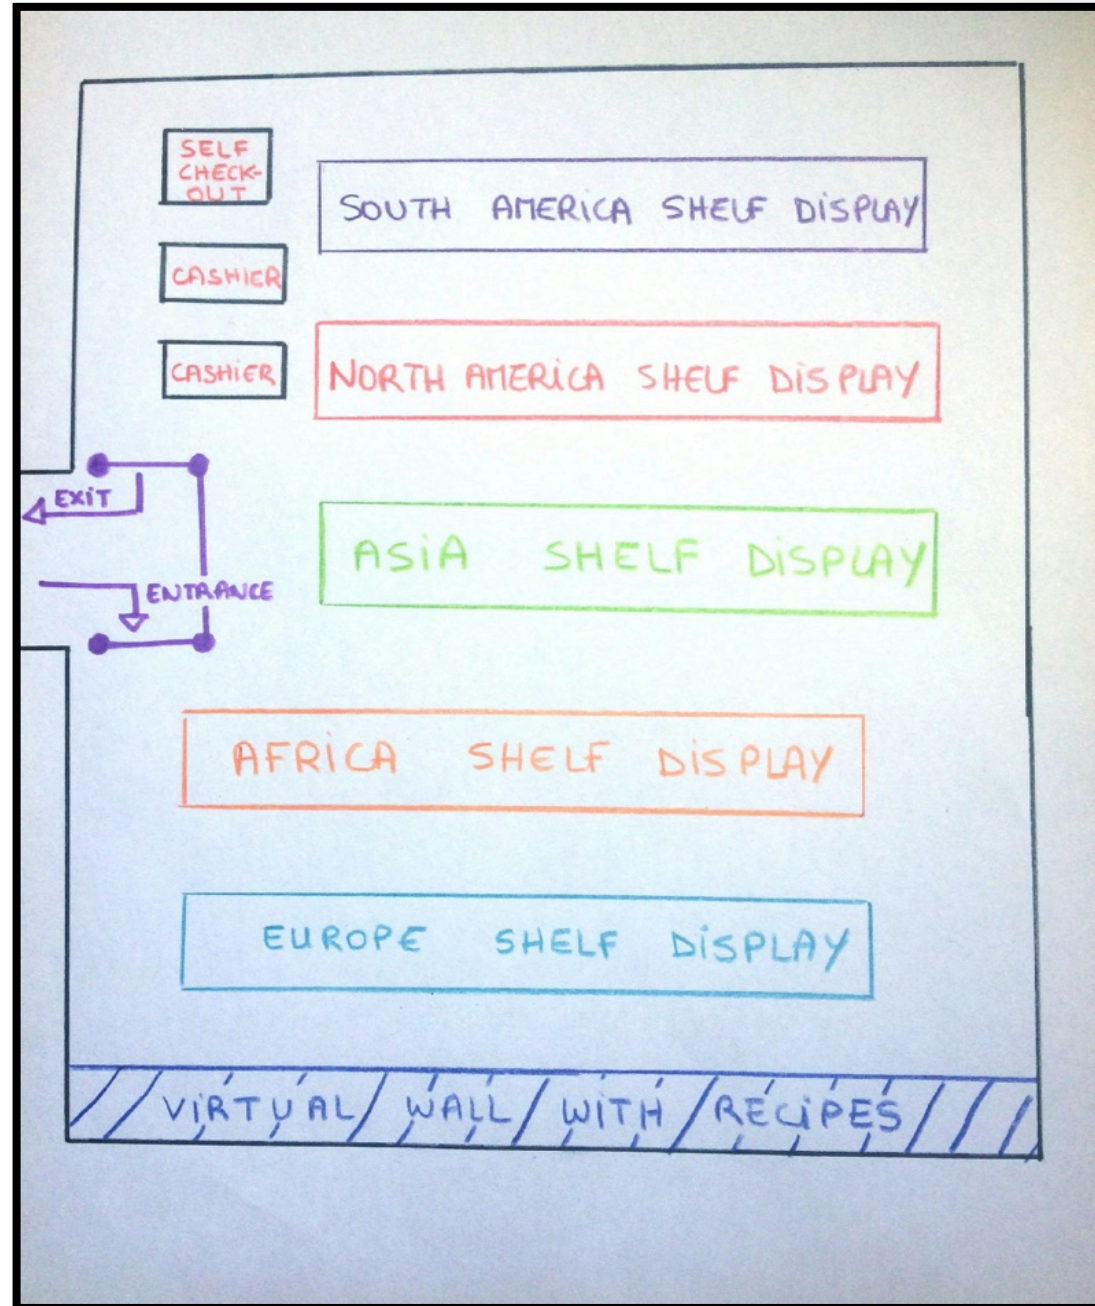 SELF
CHECK-
OUT
SOUTH AMERICA SHELF DISPLAY
CASHIER
CASHIER
NORTH AMERICA SHELF DISPLAY
EXIT
ASIA SHELF DISPLAY
ENTRANCE
AFRICA SHELF DISPLAY
EUROPE SHELF DISPLAY
VIRTUAL WALL WITH RECIPES